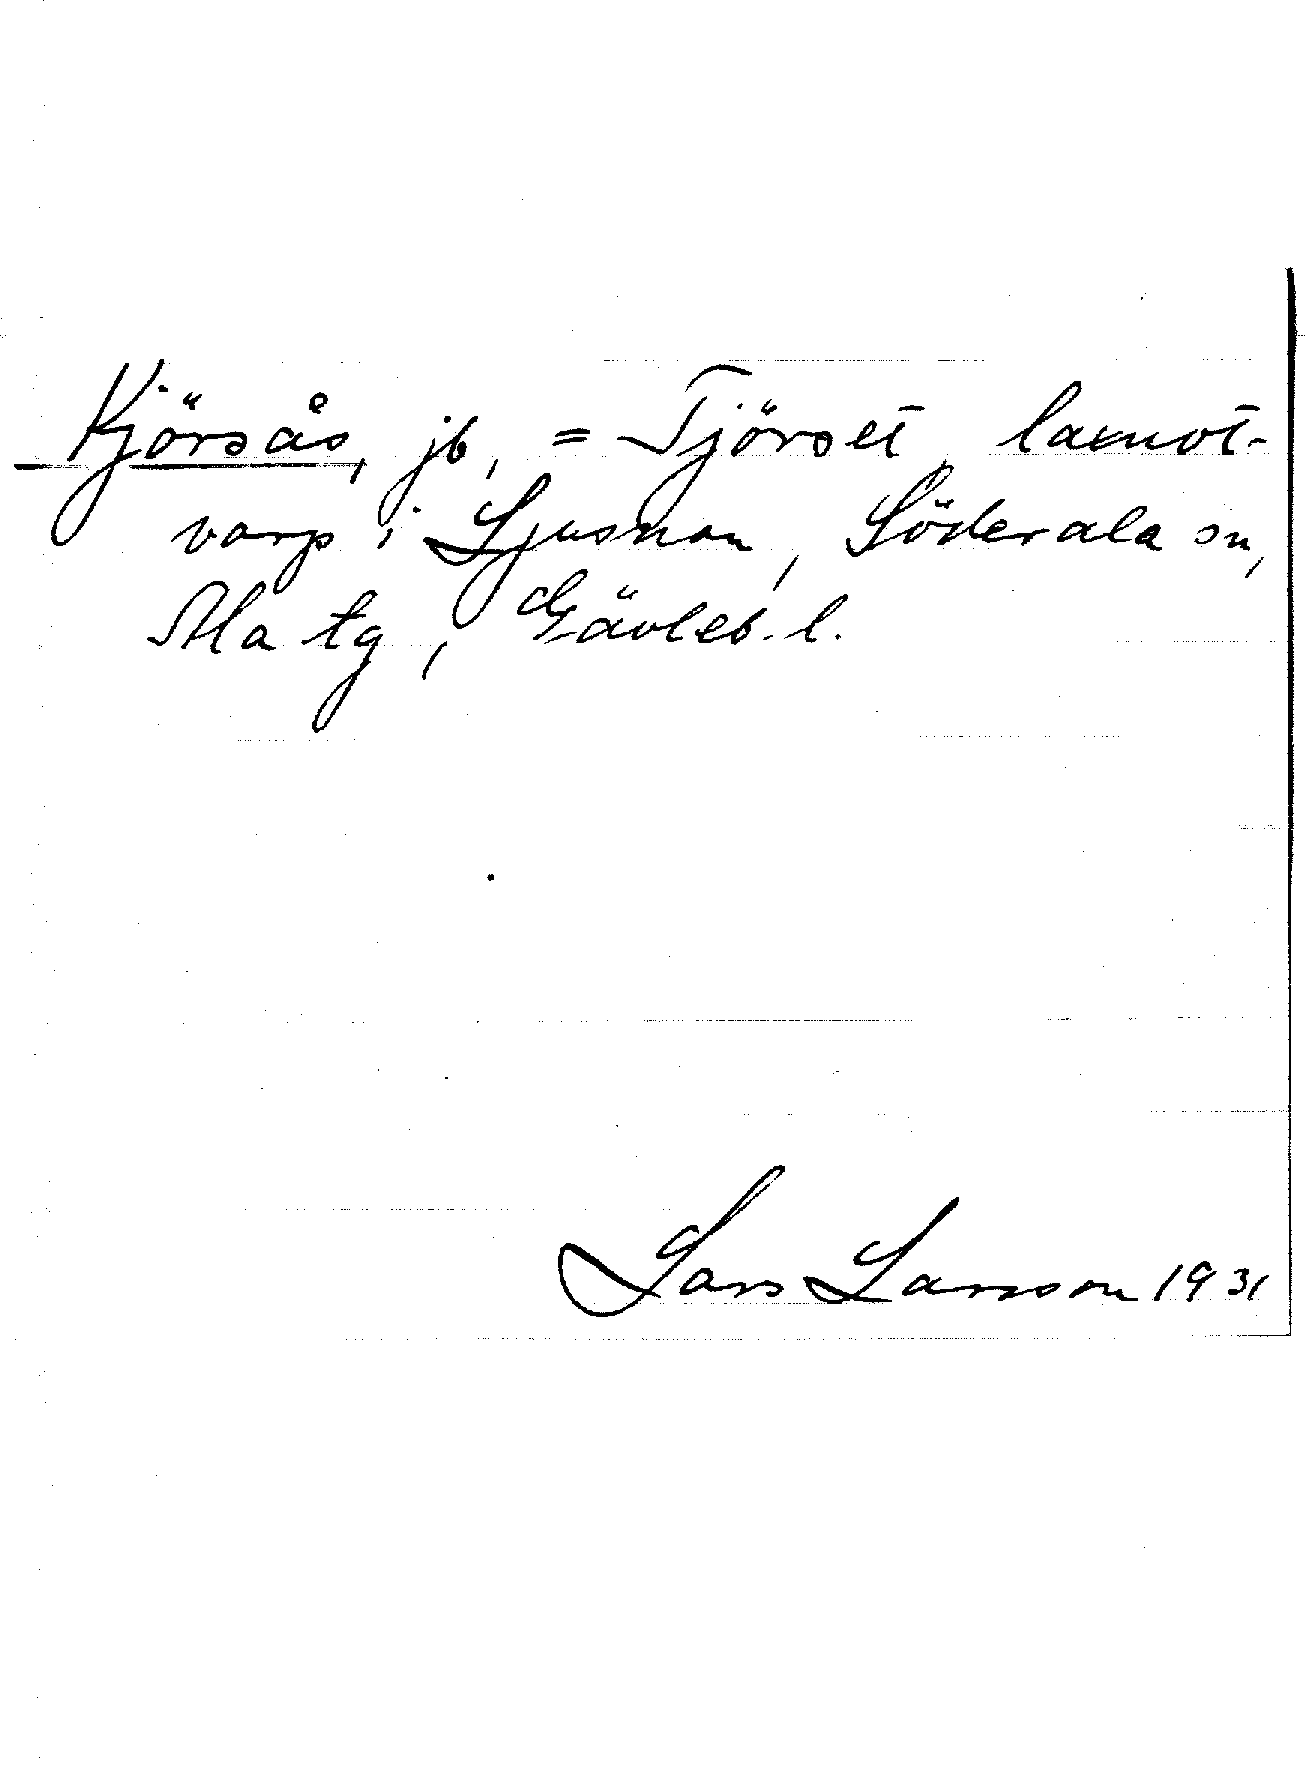 Kjörsås, jb, = Tjörset, laxnot-
varp i Ljusnan, Söderala sn,
Ala tg, Gävleb. l.
Lars Larsson 1931